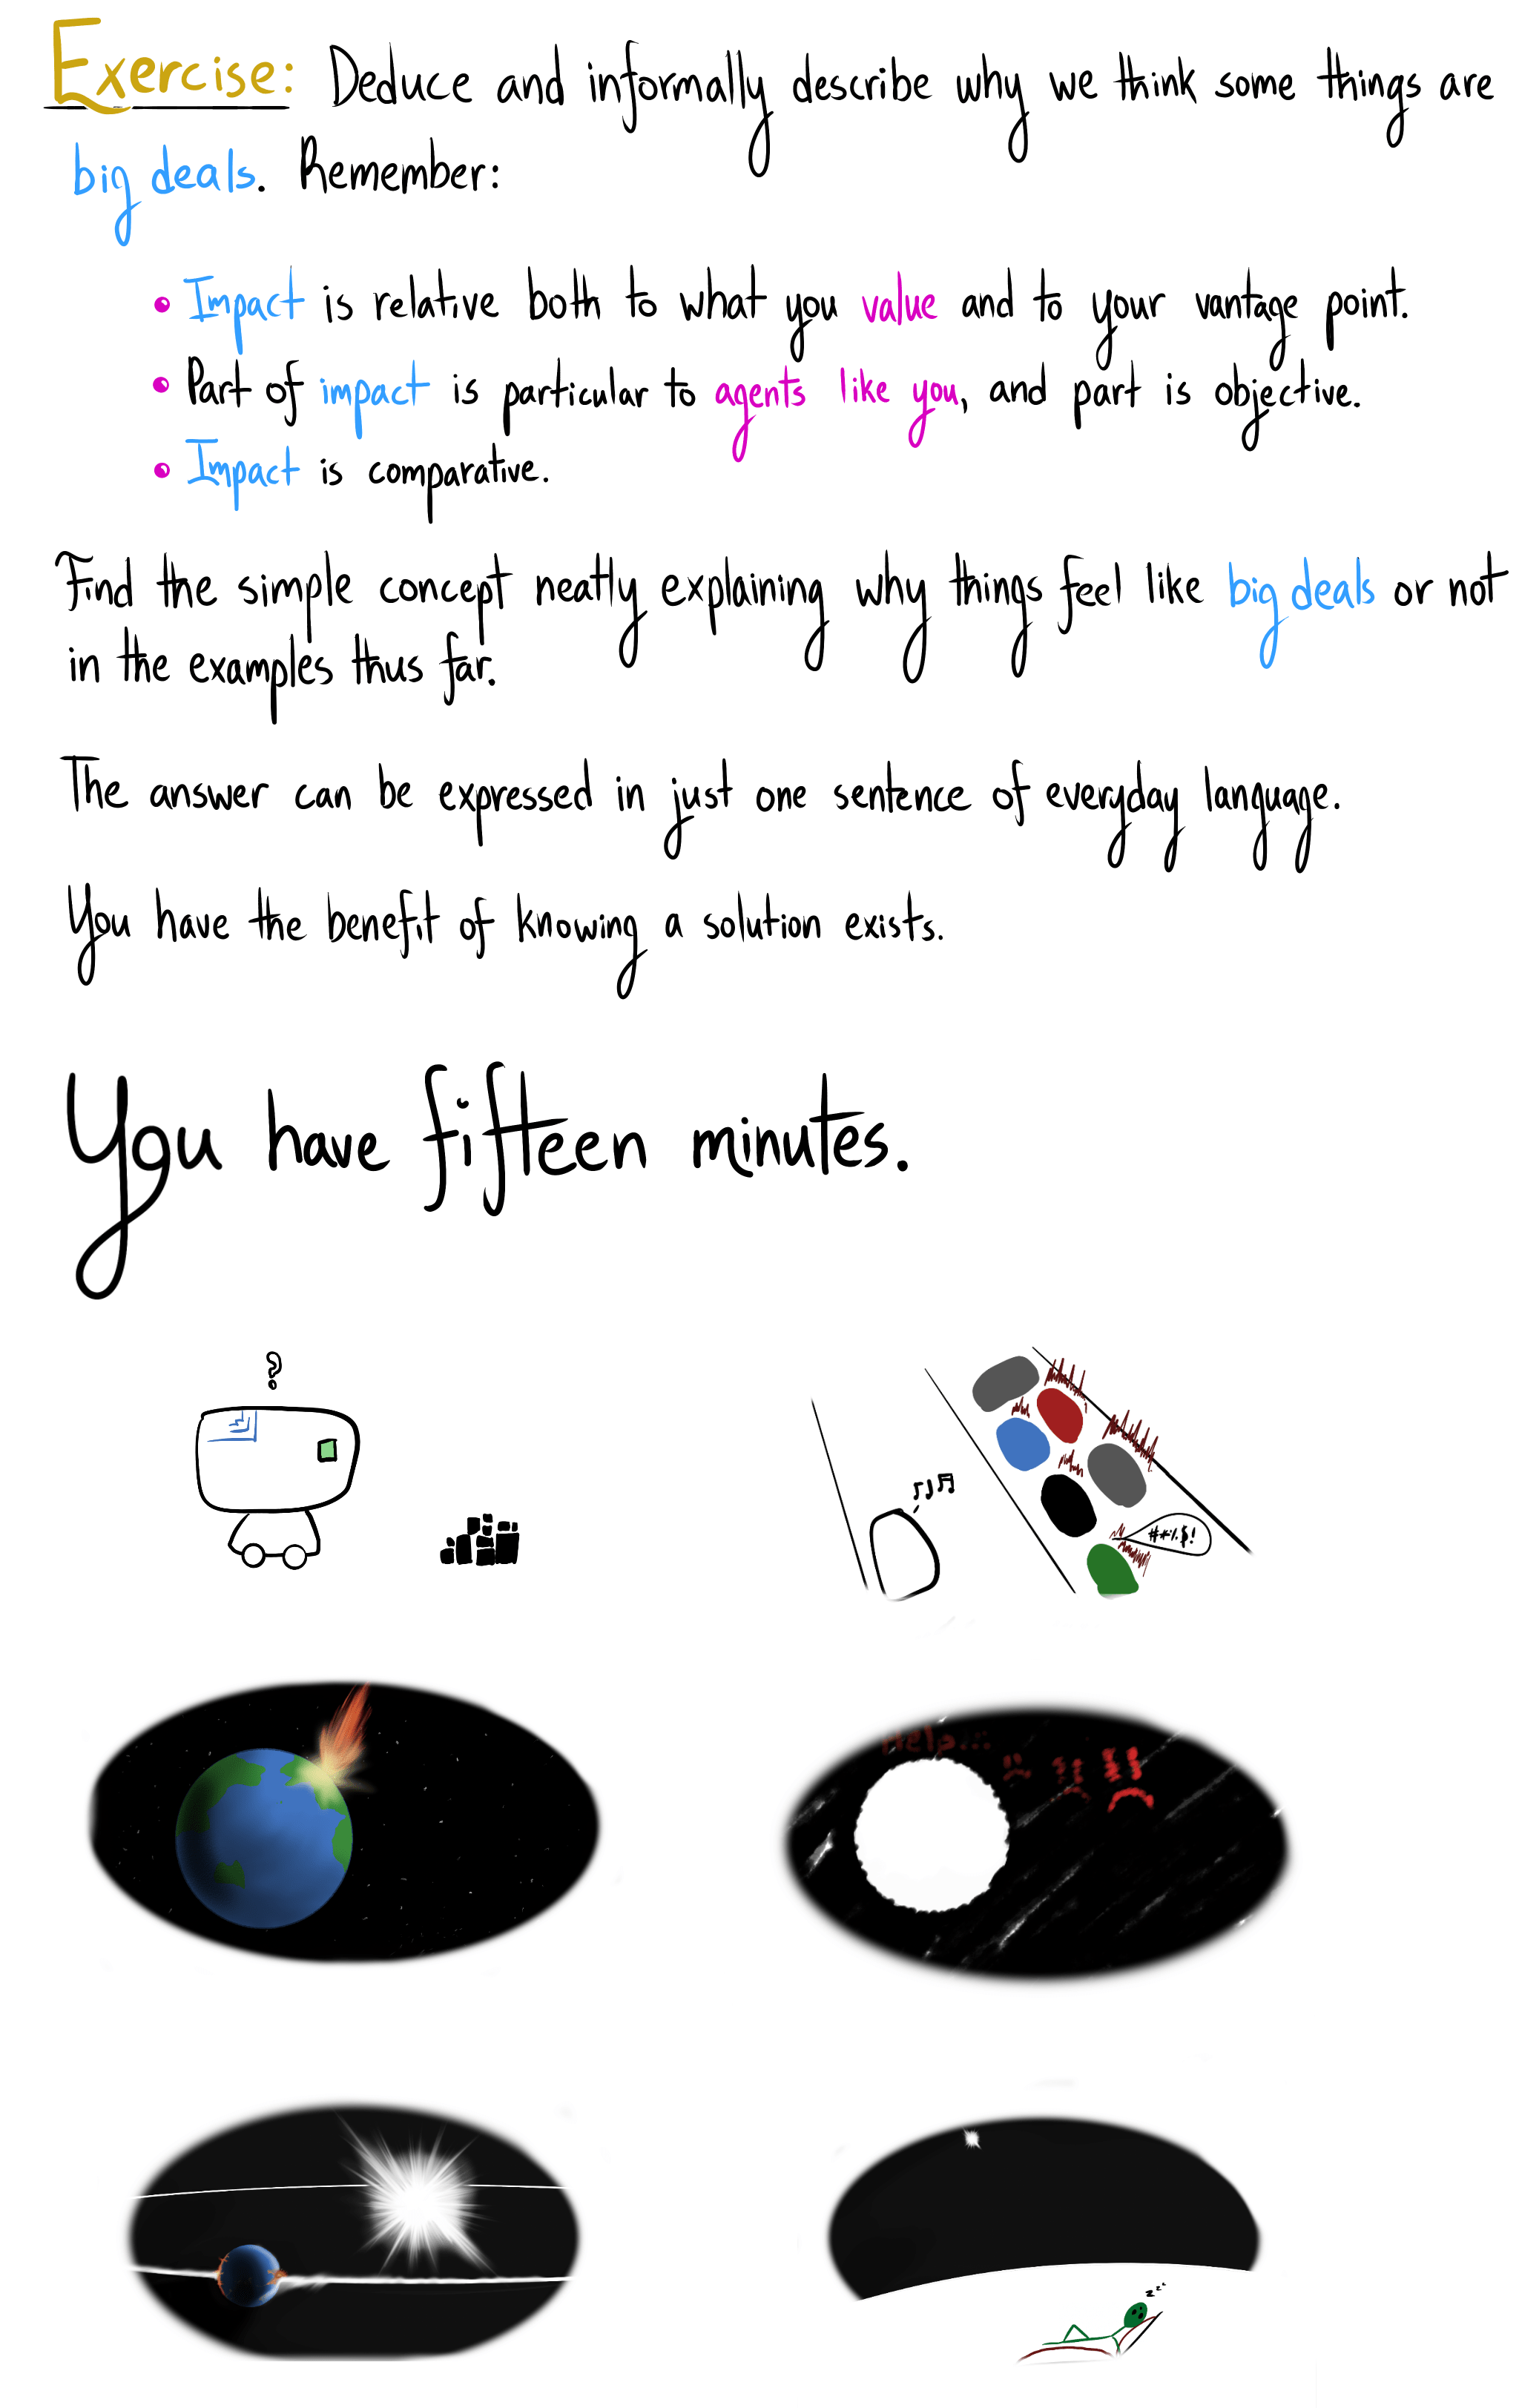 Exercise: Deduce and informally describe why we think some things are
big deals. Remember:
• Impact is relative both to what you value and to your vantage point.
• Part of impact is particular to agents like you, and part is objective.
• Impact is comparative.
Find the simple concept neatly explaining why things feel like big deals or not
in the examples thus far.
The answer can be expressed in just one sentence of everyday language.
You have the benefit of knowing a solution exists.
You have fifteen minutes.
?
##%$!
Help...
zzz